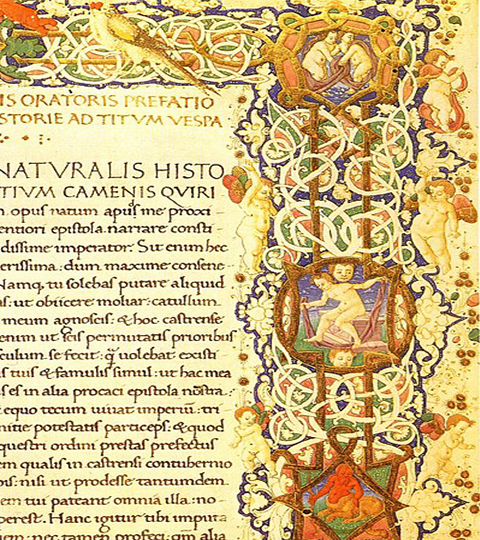 IS ORATORIS PREFATIO
STORIE AD TITVM VESPA
NATVRALIS HISTO
TIVM CAMENIS QVIRI
n opus natum apud me proxi-
entiori epistola narrare consti
dissime imperator: Sit enim hec
erissima: dum maxime consene
Namq; tu solebas putare aliquid
as: ut obiicere moliar: catullum
meum agnoscis: & hoc castrense
enim ut scis permutatis prioribus
culum se fecit: q̃ uolebat existi
s tuis & famulis simul: ut hac mea
s ei in alia procaci epistola nostra:
t equo tecum uiuat imperiũ: tri
nitie potestatis particeps: & quod
questri ordini prestas prefectus
em qualis in castrensi contubernio
bis: nisi ut prodesse tantumdem
em tui pateant omnia illa: no-
perest. Hanc igitur tibi impura
em: nec tamen profeci: qm̃ alia